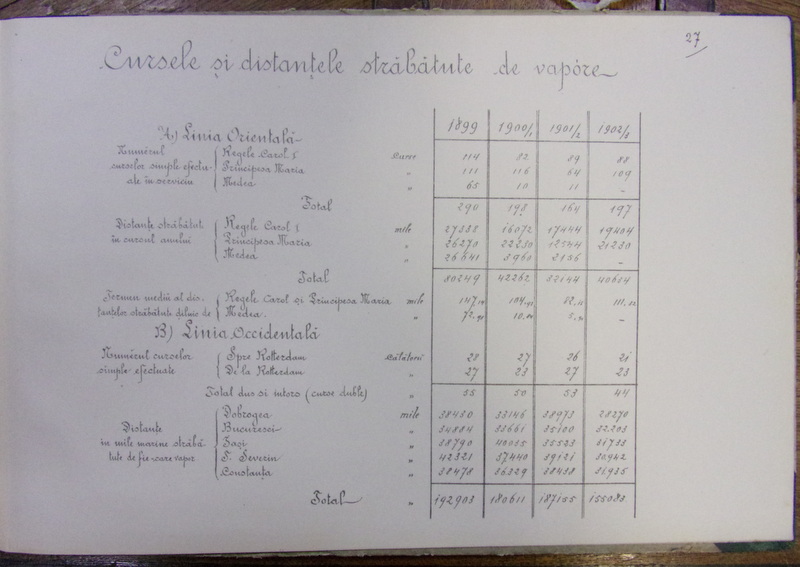 27
Cursele și distanțele străbătute de vapóre
1899 1900/1 1901/2 1902/3
A) Linia Orientală
Numĕrul Regele Carol I Curse 114 82 89 88
curselor simple efectu- Principesa Maria " 111 116 64 109
ate in serviciu Medea " 65 10 11 –
Total 290 198 164 197
Distanțe străbătut. Regele Carol I mile 27388 16072 17444 19404
in cursul anului Principesa Maria " 26270 22230 12544 21230
Medea " 26641 3960 2156 –
Total 80249 42262 32144 40604
Termen mediŭ al dis- Regele Carol și Principesa Maria mile
tanțelor străbătute dilnic de Medea. " –
B) Linia Occidentală
Numĕrul curselor Spre Rotterdam Călătorii 28 27 26 21
simple efectuate De la Rotterdam " 27 23 27 23
Total dus și intors (curse duble) " 55 50 53 44
Dobrogea mile 38430 33146 38973 28270
Distanțe Bucuresci " 34884 33661 35100 32203
in mile marine străbă- Iași " 38790 40035 35523 31733
tute de fie-care vapor T. Severin " 42321 37440 39121 30942
Constanța " 38478 36329 38438 31935
Total " 192903 180611 187155 155083